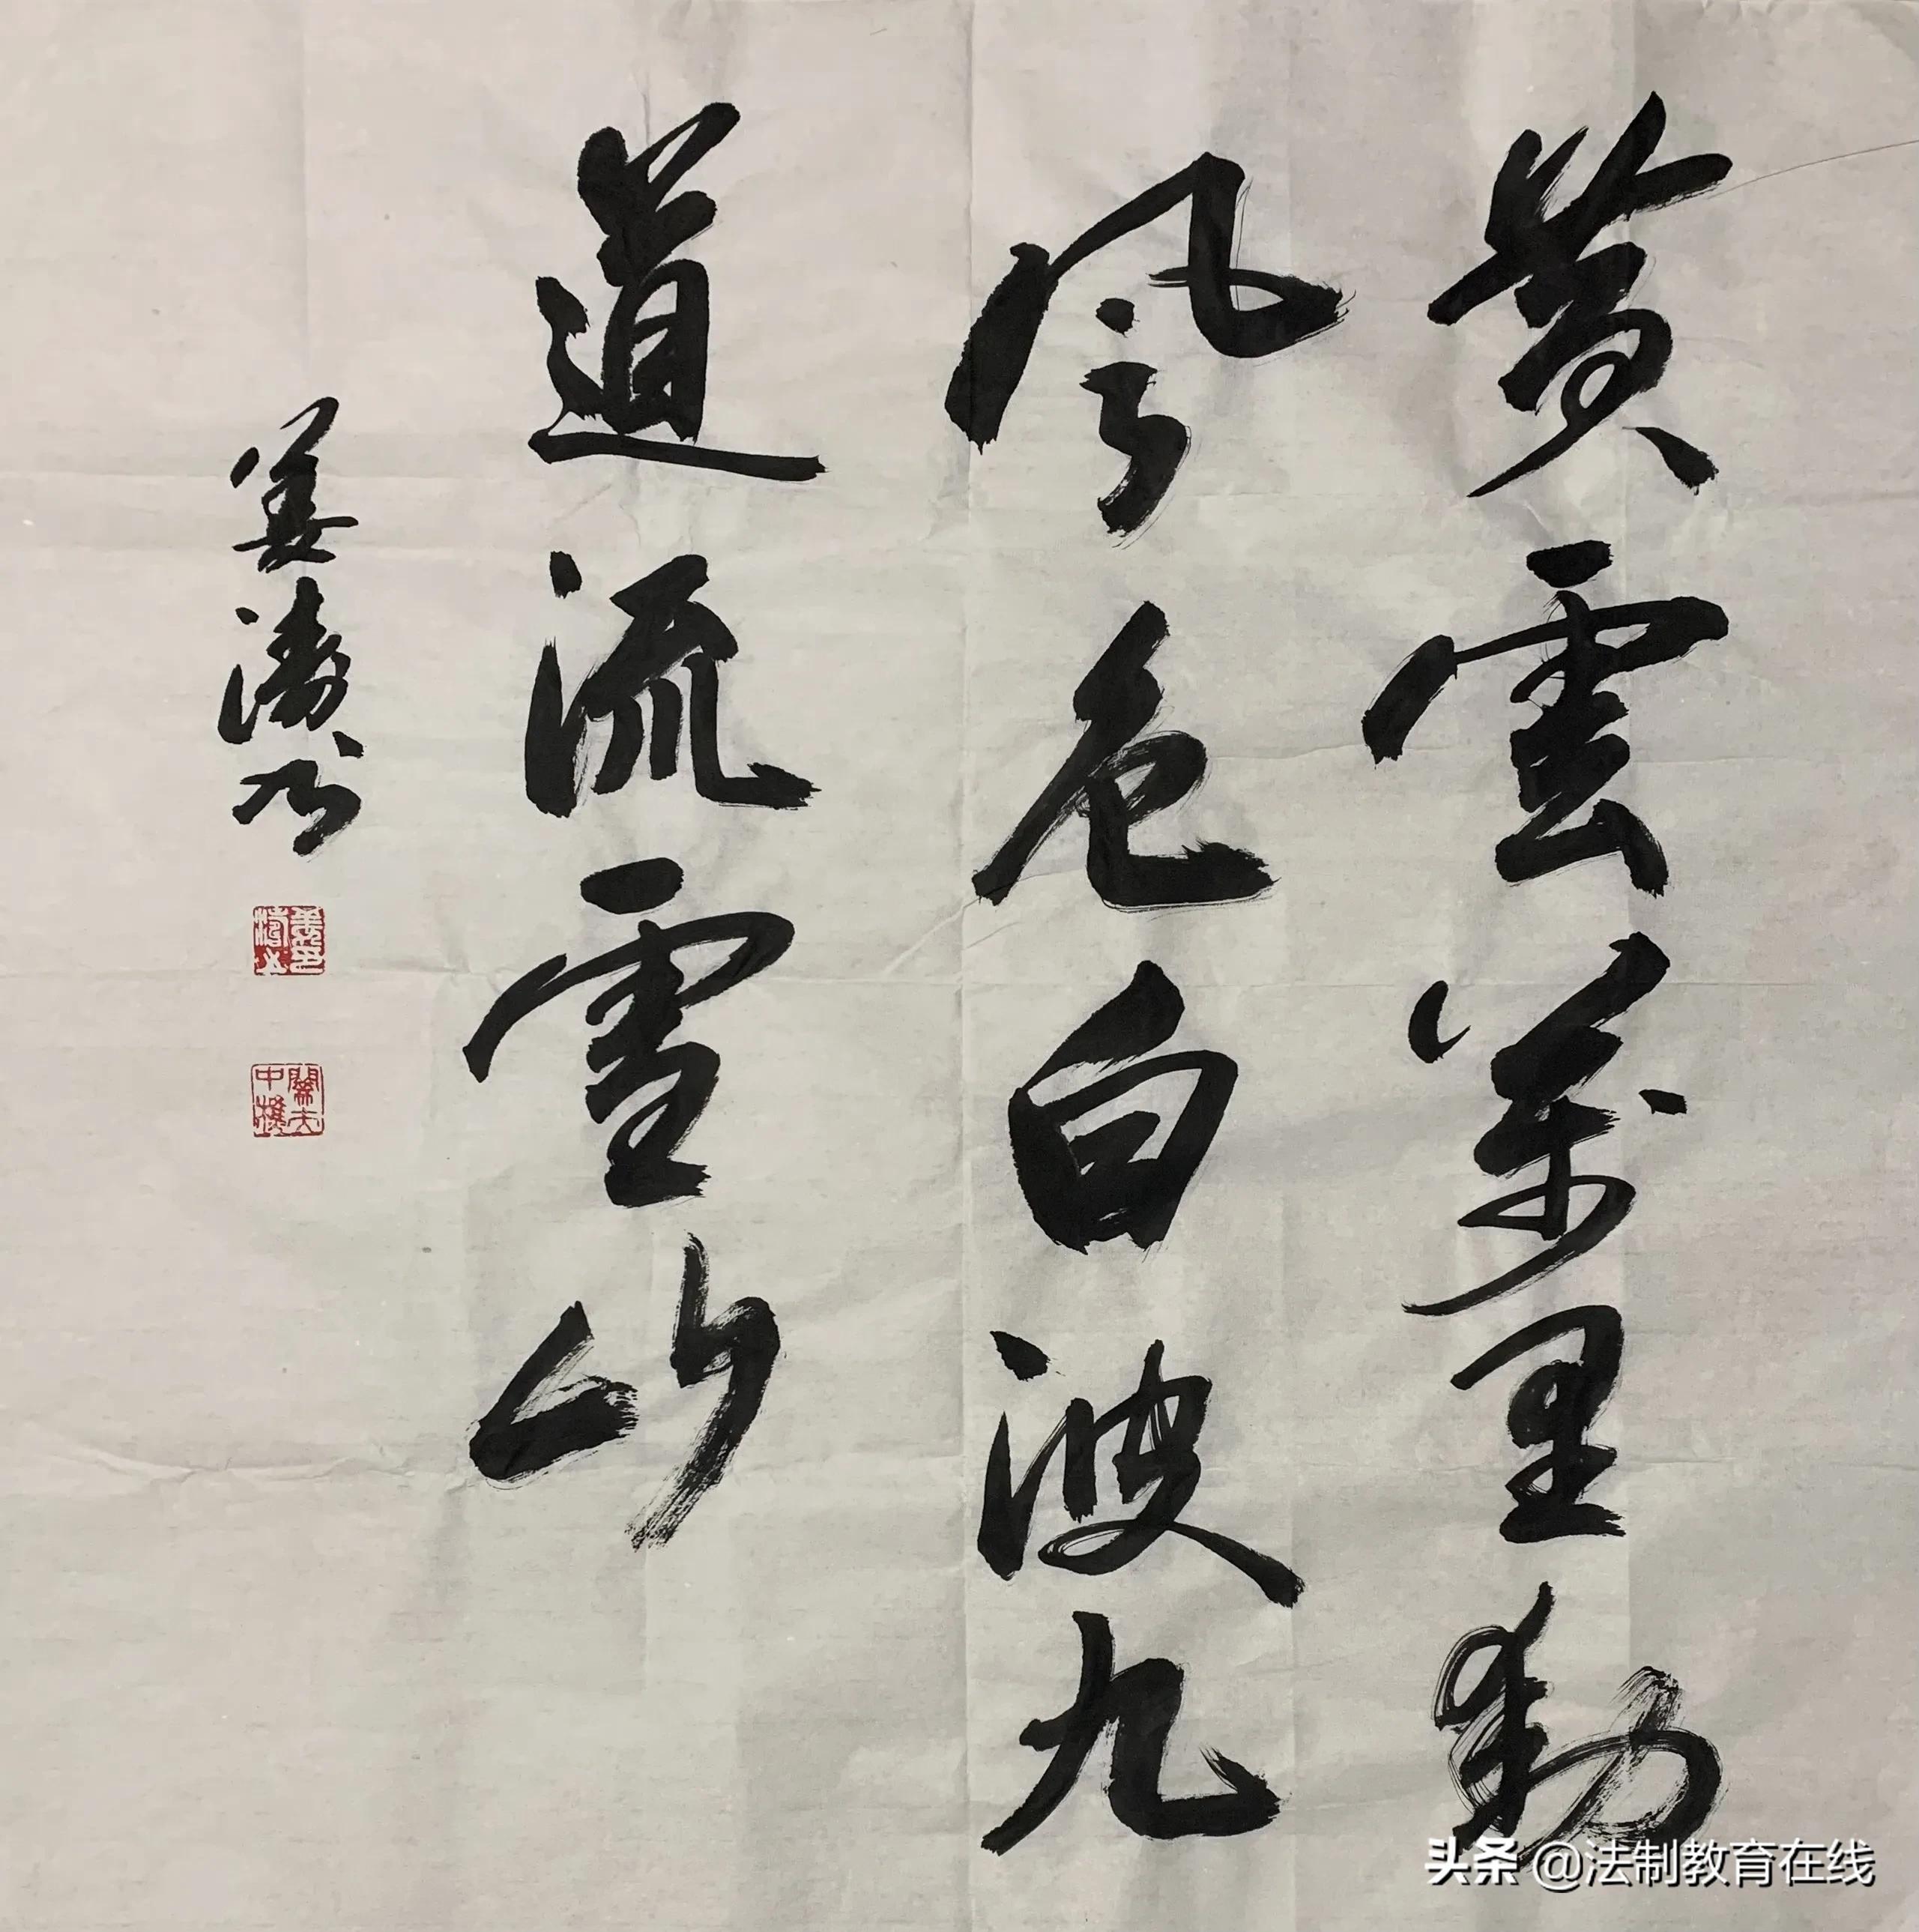 黄雲萬里動
風色白波九
道流雪山
姜濤書
關夫
中樵
头条 @法制教育在线